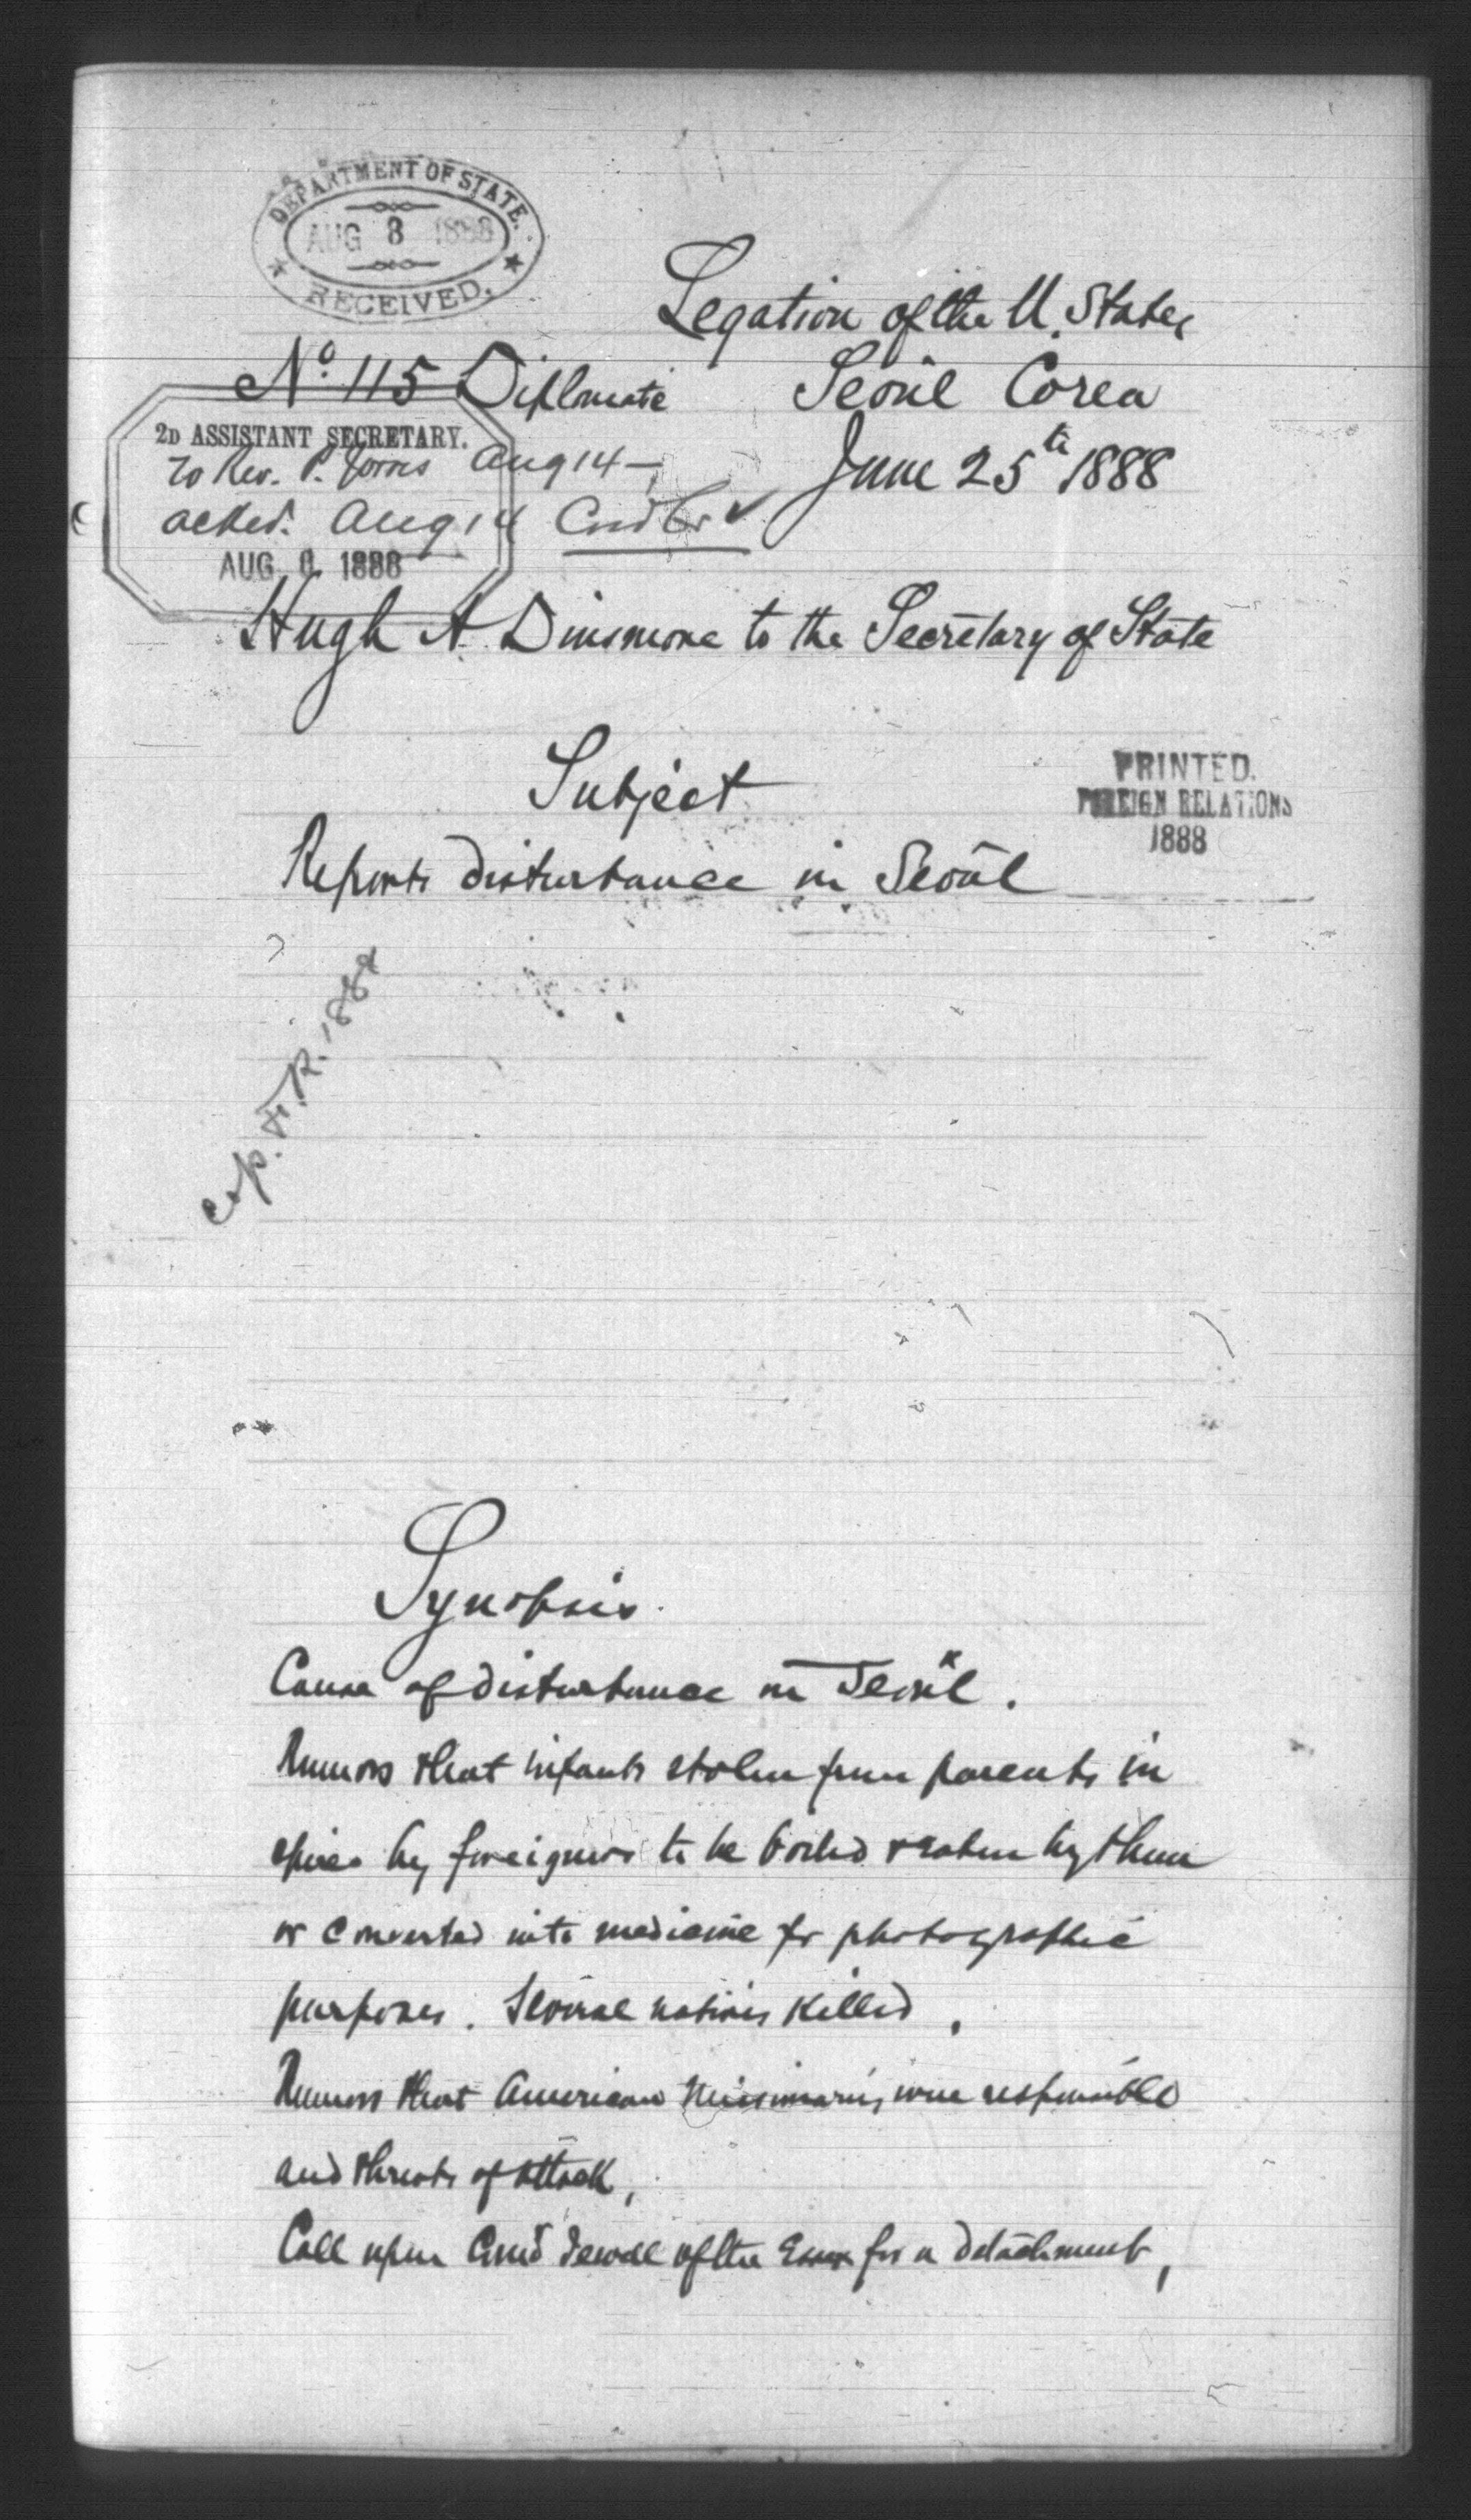 DEPARTMENT OF STATE.
AUG 8 1888
RECEIVED.
Legation of the U. States
No. 115 Diplomatic Seoul Corea
2D ASSISTANT SECRETARY.
June 25th 1888
to Rev. P. Aug 14 —
acked. Aug 14
AUG 8 1888
Hugh A. Dinsmore to the Secretary of State
Subject
PRINTED.
FOREIGN RELATIONS
1888
Reports disturbance in Seoul
cop. F.R. 1888
Synopsis.
Cause of disturbance in Seoul.
Rumors that infants stolen from parents in
by foreigners to be boiled & eaten by them
or converted into medicine for photographic
purposes. Several natives killed.
Rumors that American Missionaries were responsible
and threats of attack,
Call upon Comd'r of the Essex for a detachment,